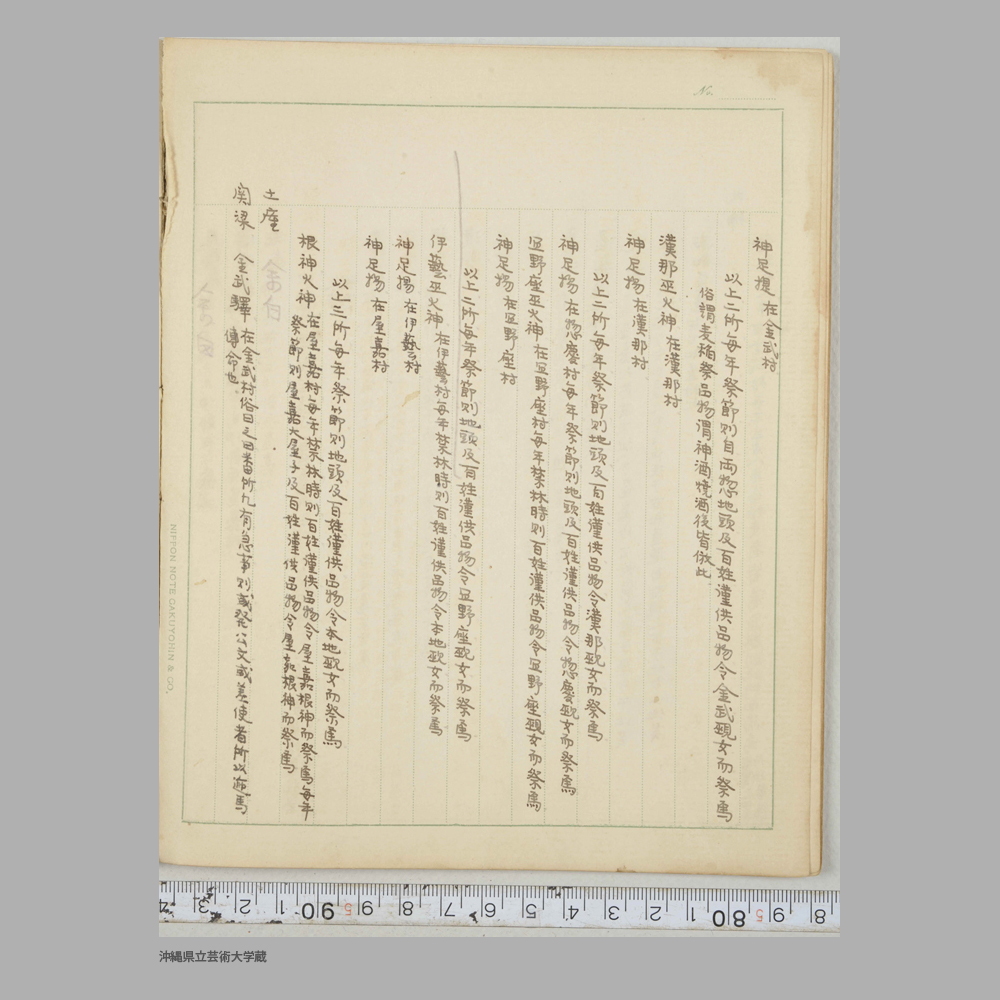 No.
神足揚 在金武村
以上二所每年祭節則自両惣地頭及百姓謹供品物令金武覡女而祭焉
俗謂麦稲祭品物謂神酒焼酒後皆倣此
漢那巫火神 在漢那村
神足揚 在漢那村
以上二所每年祭節則地頭及百姓謹供品物令漢那覡女而祭焉
神足揚 在惣慶村每年祭節則地頭及百姓謹供品物令惣慶覡女而祭焉
宜野座巫火神 在宜野座村每年禁林時則百姓謹供品物令宜野座覡女而祭焉
神足揚 在宜野座村
以上二所每年祭節則地頭及百姓謹供品物令宜野座覡女而祭焉
伊藝巫火神 在伊藝村每年禁林時則百姓謹供品物令本地覡女而祭焉
神足揚 在伊藝村
神足揚 在屋嘉村
以上三所每年祭節則地頭及百姓謹供品物令本地覡女而祭焉
根神火神 在屋嘉村每年禁林時則百姓謹供品物令屋嘉根神而祭焉每年
祭節則屋嘉大屋子及百姓謹供品物令屋嘉根神而祭焉
土産
関梁 金武驛 在金武村俗曰之曰番所凡有急事則或発公文或差使者所以逓馬
傳命也
NIPPON NOTE GAKUYOHIN & CO.
8 9 5 80 1 2 3 4 5 6 7 8 9 5 90 1 2 3 4
沖縄県立芸術大学蔵